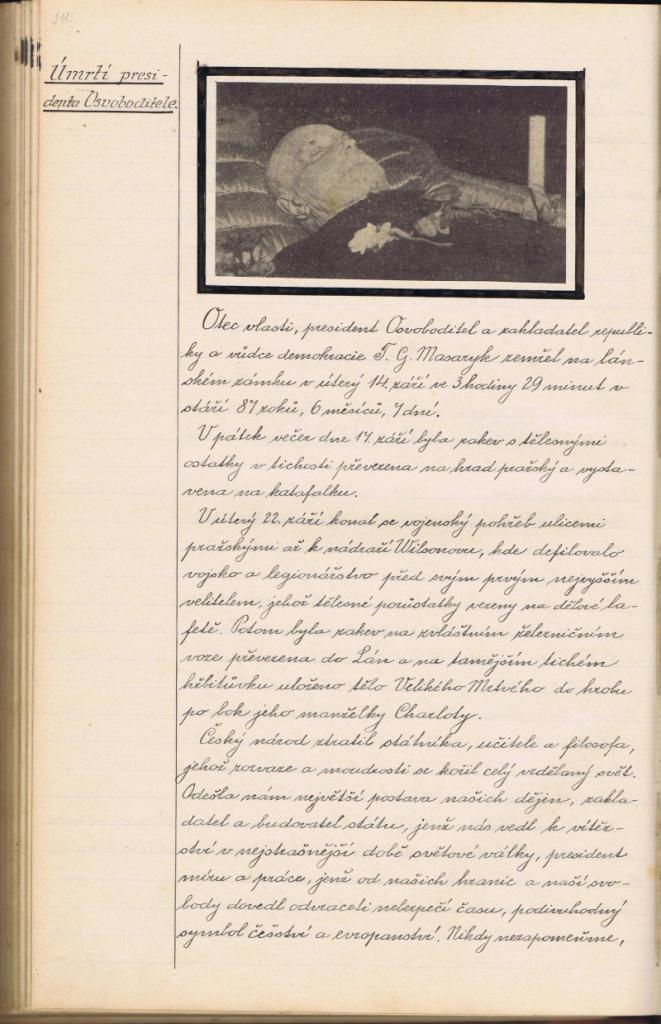 311.
Úmrtí presi-
denta Osvoboditele.
Otec vlasti, president Osvoboditel a zakladatel republi-
ky a vůdce demokracie T. G. Masaryk zemřel na lán-
ském zámku v úterý 14. září ve 3 hodiny 29 minut v
stáří 87 roků, 6 měsíců, 7 dní.
V pátek večer dne 17. září byla rakev s tělesnými
ostatky v tichosti převezena na hrad pražský a vysta-
vena na katafalku.
V úterý 22. září konal se vojenský pohřeb ulicemi
pražskými až k nádraží Wilsonovu, kde defilovalo
vojsko a legionářstvo před svým prvým nejvyšším
velitelem, jehož tělesné pozůstatky vezeny na dělové la-
fetě. Potom byla rakev na zvláštním železničním
voze převezena do Lán a na tamějším tichém
hřbitůvku uloženo tělo Velikého Mrtvého do hrobu
po bok jeho manželky Charloty.
Český národ ztratil státníka, učitele a filosofa,
jehož rozvaze a moudrosti se kořil celý vzdělaný svět.
Odešla nám největší postava našich dějin, zakla-
datel a budovatel státu, jenž nás vedl k vítěz-
ství v nejstrašnější době světové války, president
míru a práce, jenž od našich hranic a naší svo-
body dovedl odvraceti nebezpečí času, podivuhodný
symbol češství a evropanství. Nikdy nezapomeňme,